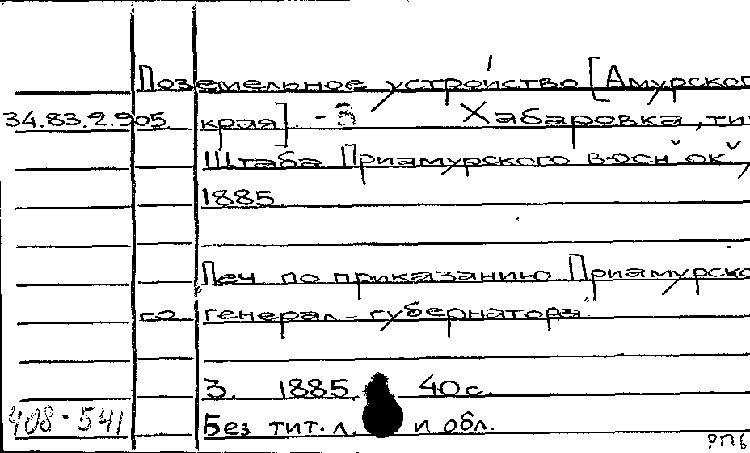 Поземельное устройство [Амурског
34.83.2.905 края]. - 3 Хабаровка, ти
Штаба Приамурского воен ок,
1885.
Печ по приказанию Приамурско
го генерал-губернатора.
3. 1885. 40 с.
408-541 Без тит. л. и обл.
РПБ